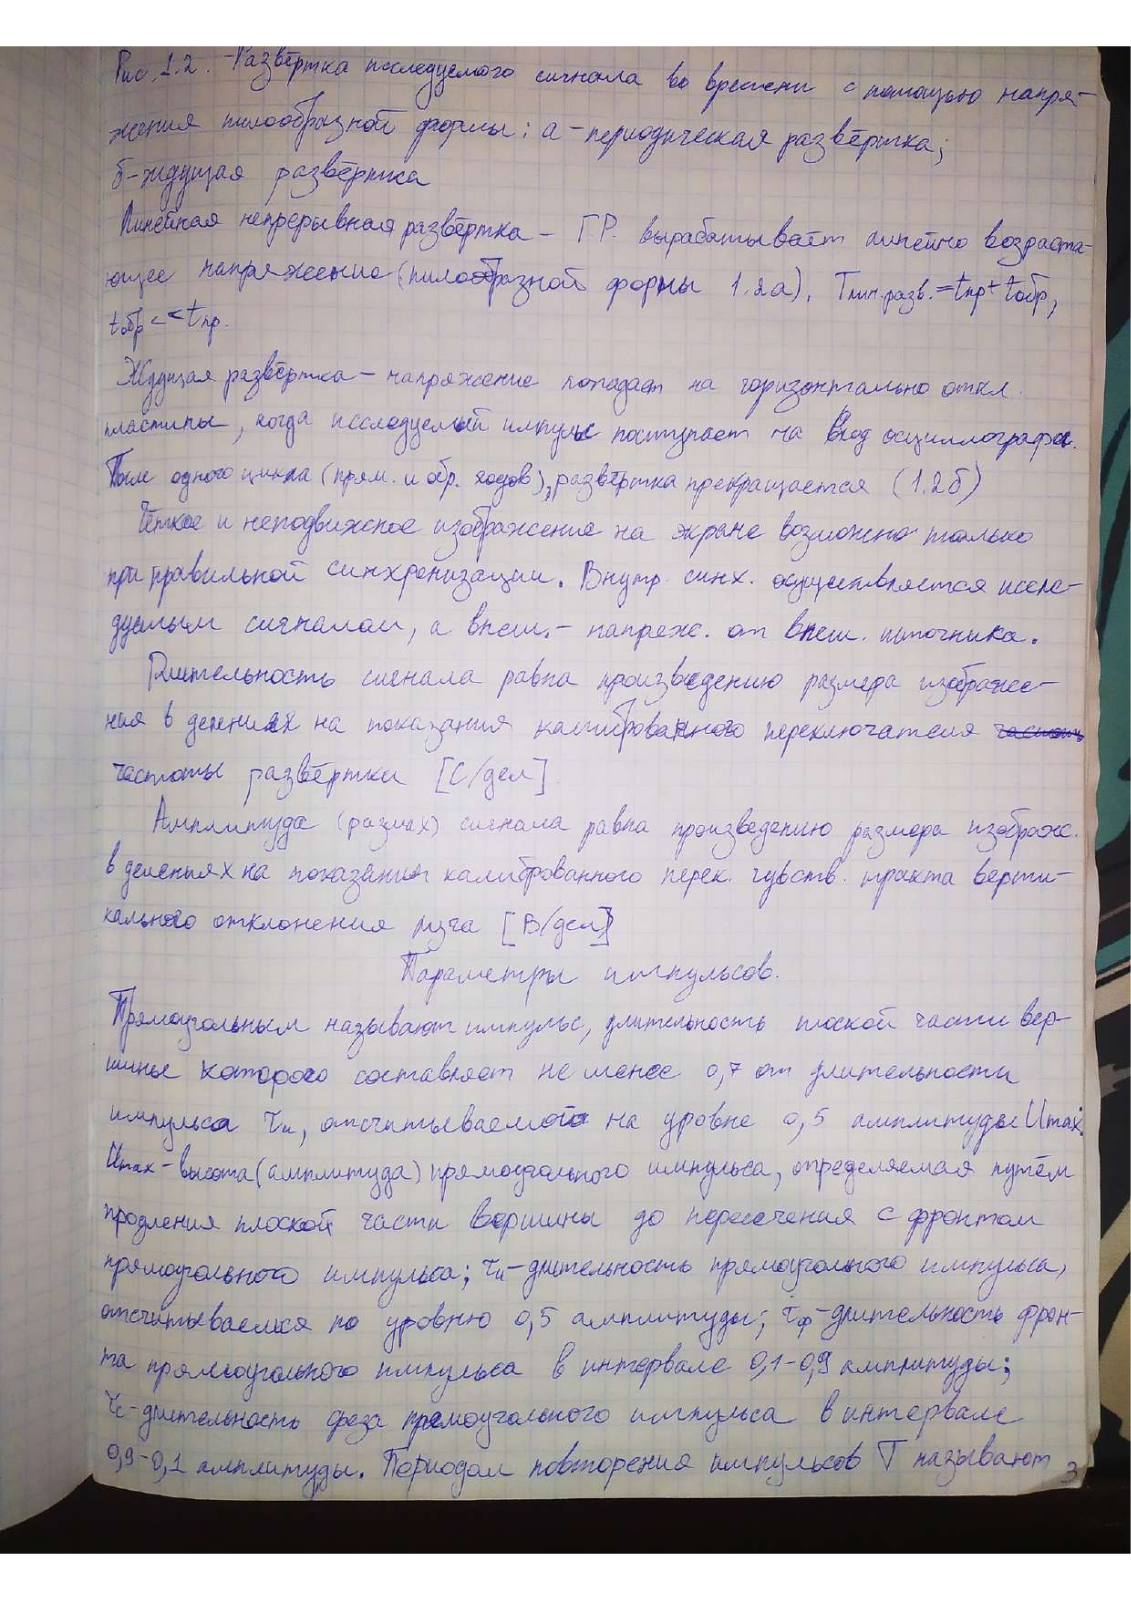 Рис. 1.2. Развёртка исследуемого сигнала во времени с помощью напря-
жения пилообразной формы: а - периодическая развёртка;
б - ждущая развёртка
Линейная непрерывная развёртка - ГР вырабатывает линейно возраста-
ющее напряжение (пилообразной формы 1.2а). Tлин.разв. = tпр + tобр,
tобр << tпр.
Ждущая развёртка - напряжение попадает на горизонтально откл.
пластины, когда исследуемый импульс поступает на вход осциллографа.
После одного цикла (прям. и обр. ходов), развёртка прекращается (1.2б)
Чёткое и неподвижное изображение на экране возможно только
при правильной синхронизации. Внутр. синх. осуществляется иссле-
дуемым сигналом, а внеш. - напряж. от внеш. источника.
Длительность сигнала равна произведению размера изображе-
ния в делениях на показания калиброванного переключателя
частоты развёртки [С/дел]
Амплитуда (размах) сигнала равна произведению размера изображ.
в делениях на показания калиброванного перек. чувств. тракта верти-
кального отклонения луча [В/дел]
Параметры импульсов.
Прямоугольным называют импульс, длительность плоской части вер-
шины которого составляет не менее 0,7 от длительности
импульса τи, отсчитываемой на уровне 0,5 амплитуды Umax.
Umax - высота (амплитуда) прямоугольного импульса, определяемая путём
продления плоской части вершины до пересечения с фронтом
прямоугольного импульса; τи - длительность прямоугольного импульса,
отсчитываемая по уровню 0,5 амплитуды; τф - длительность фрон-
та прямоугольного импульса в интервале 0,1-0,9 амплитуды;
τс - длительность среза прямоугольного импульса в интервале
0,9-0,1 амплитуды. Периодом повторения импульсов T называют
3